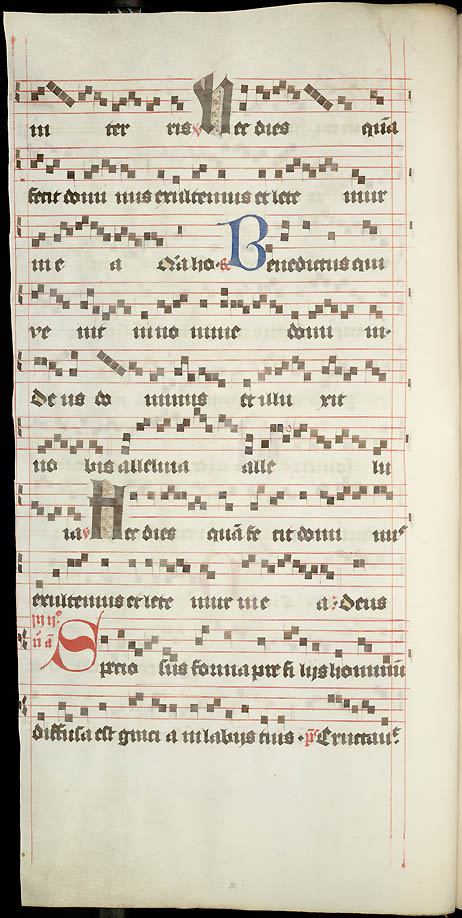 in ter ris ℣ Hec dies quā
fecit domi nus exultemus et lete mur
in e a Q̄a ho. ℟ Benedictus qui
ve nit in no mine domi ni.
De us do minus et illu xit
no bis alleluia alle lu
ia ℣ Hec dies quā fe cit domi nus
exultemus et lete mur in e a : Deus
Specio sus forma pre fi lijs hominū
diffusa est graci a in labijs tuis . ps̄ Eructauᵗ